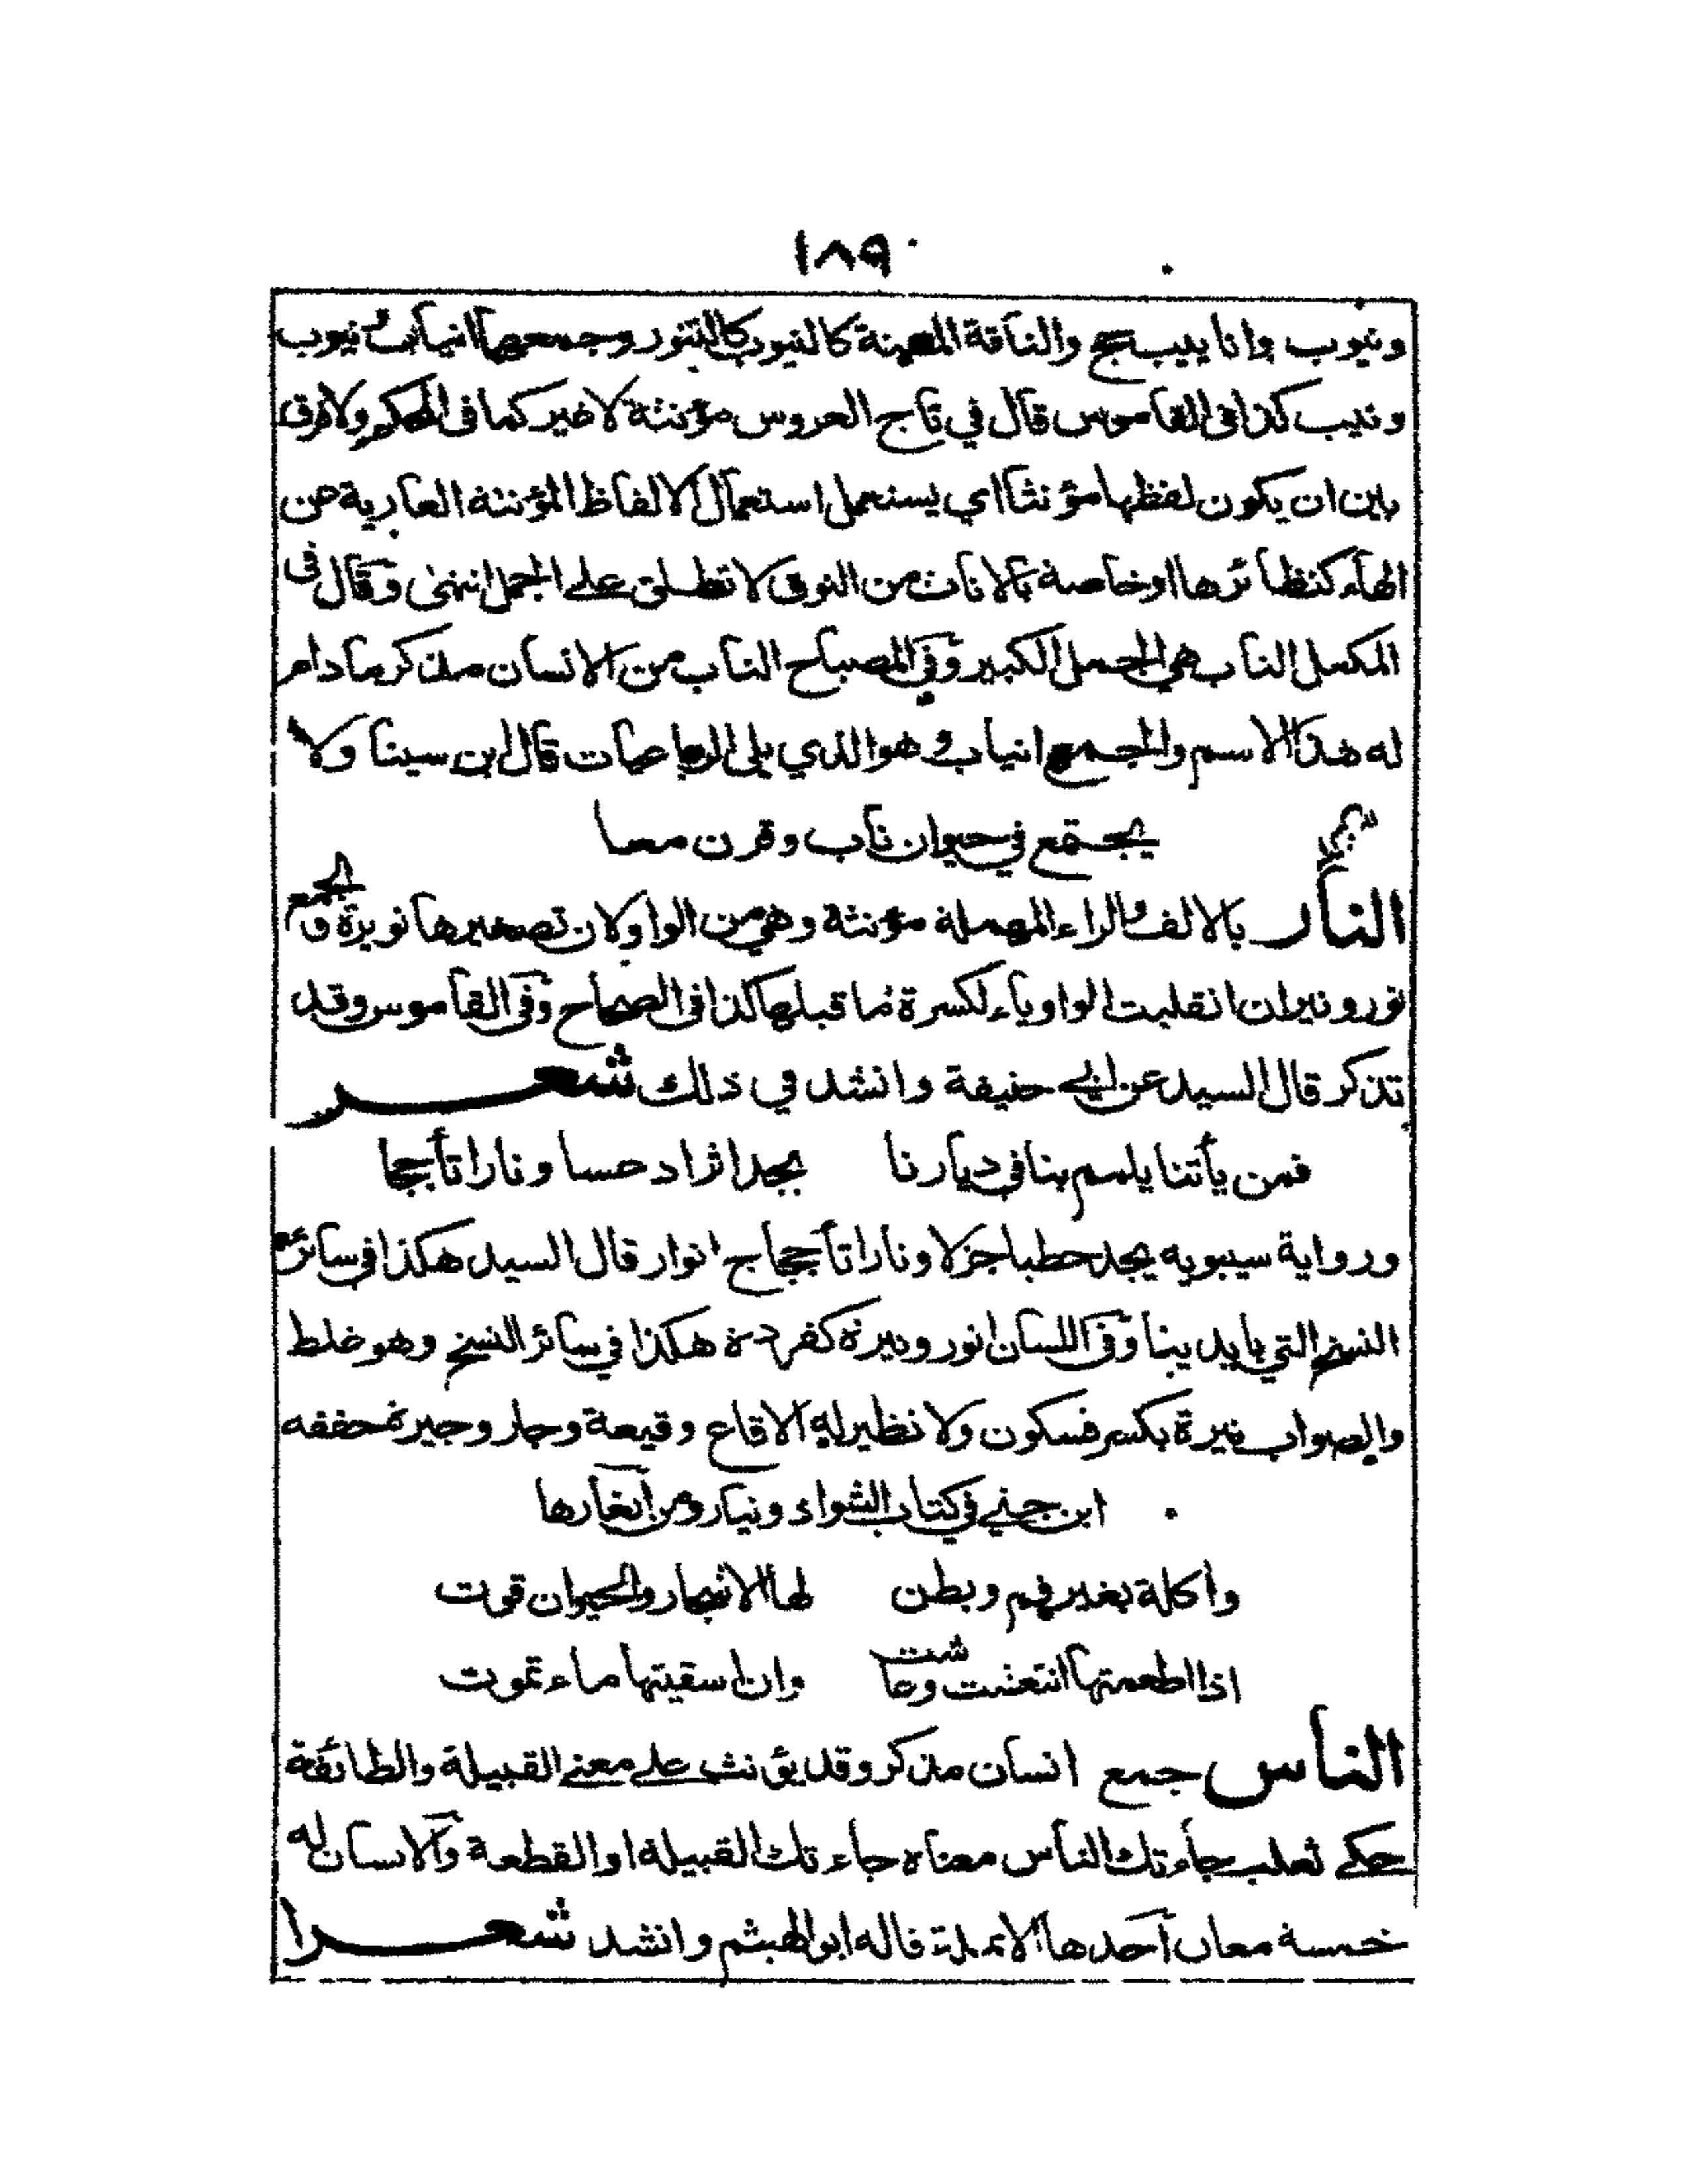 ١٨٩
ونيوب وانا ييب جج والناقة المسنة كالنيوب كالتنور وجمعهما انياب نيوب
ونيب كذا فى القاموس قال في تاج العروس مؤنثة لا غير كما فى المحكم ولا فرق
بين ان يكون لفظها مؤنثا اي يستعمل استعمال الالفاظ المؤنثة العارية من
الهاء كنظائرها او خاصة بالاناث من النوق لا تطلق على الجمل انتهى وقال فى
المكمل الناب هي الجمل الكبير وفى المصباح الناب من الانسان مذكر ما دام
له هذا الاسم والجمع انياب وهو الذي يلى الرباعيات قال ابن سينا ولا
يجتمع في حيوان ناب وقرن معا
النار بالالف والراء المهملة مؤنثة وهي من الواو لان تصغيرها نويرة والجمع
نور ونيران انقلبت الواو ياء لكسرة ما قبلها كذا فى الصحاح وفى القاموس وقد
تذكر قال السيد عن ابي حنيفة وانشد في ذلك شعر
فمن يأتنا يلمم بنا في ديارنا يجد اثرا دعسا ونارا تأججا
ورواية سيبويه يجد حطبا جزلا ونارا تأججا ج انوار قال السيد هكذا في سائر
النسخ التي بايدينا وفى اللسان انور ونيرة كقردة هكذا في سائر النسخ وهو غلط
والصواب نيرة بكسر فسكون ولا نظير له الا قاع وقيعة وجار وجيرة حققه
ابن جني في كتاب الشواذ ونيار ومن الغازها
واكلة بغير فم وبطن لها الاشجار والحيوان قوت
اذا اطعمتها انتعشت وعاشت وان اسقيتها ماء تموت
الناس جمع انسان مذكر وقد يؤنث على معنى القبيلة والطائفة
حكى ثعلب جاءتك الناس معناه جاءتك القبيلة او القطعة والانسان له
خمسة معان احدها الانملة قاله ابو الهيثم وانشد شعرا